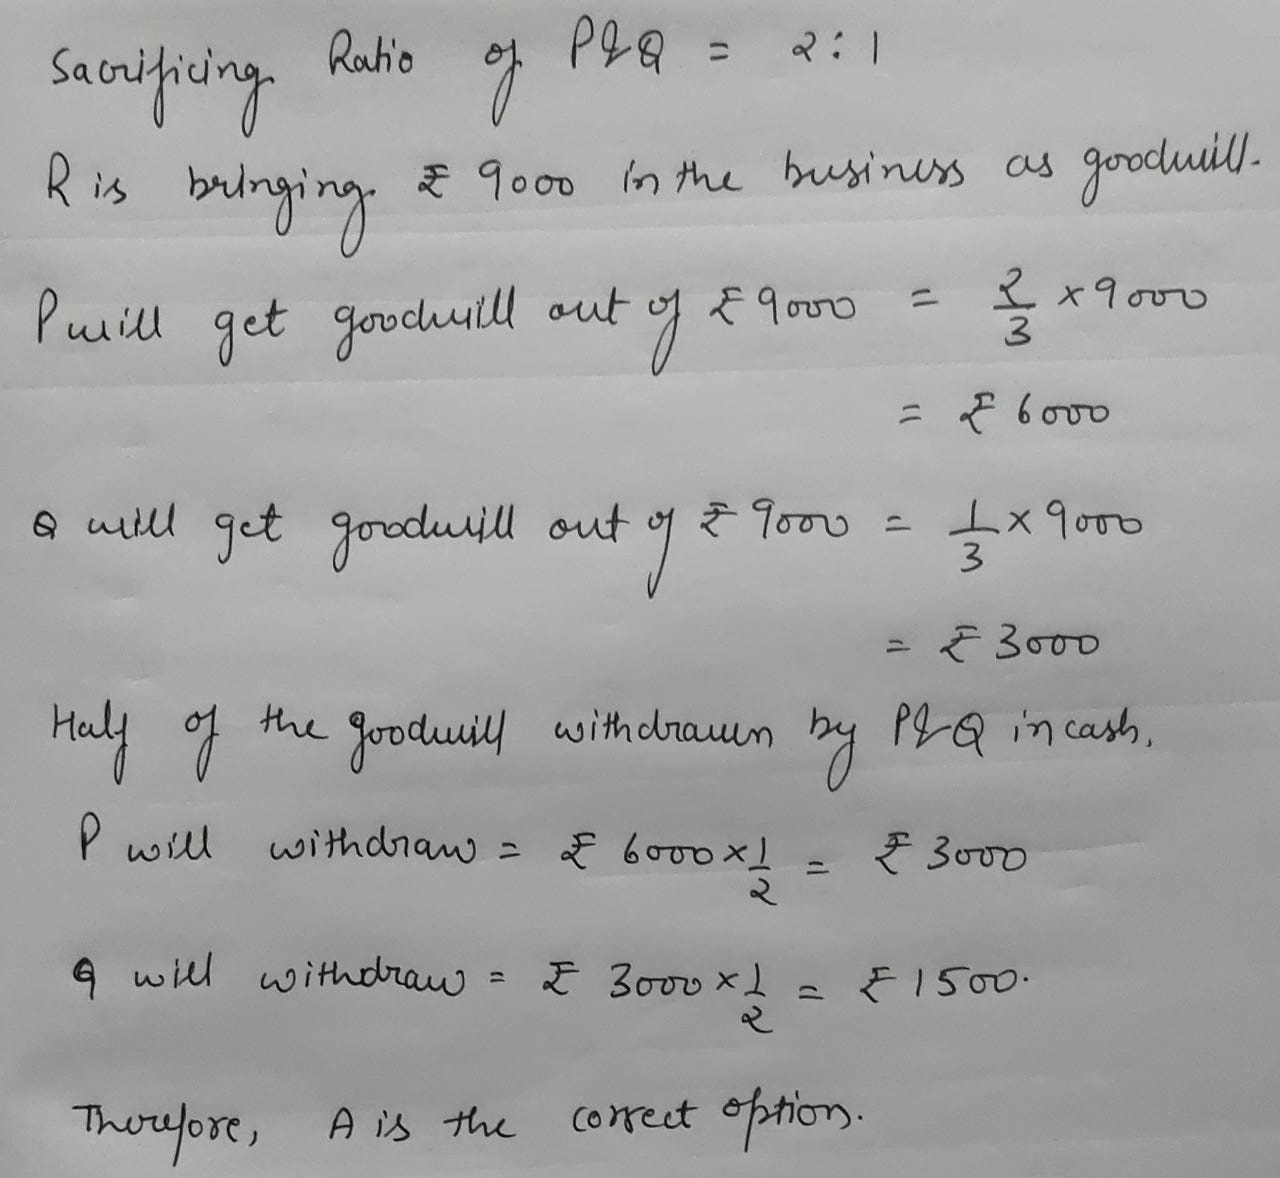 Sacrificing Ratio of P&Q = 2:1
R is bringing ₹ 9000 in the business as goodwill.
P will get goodwill out of ₹9000 = 2/3 × 9000
= ₹ 6000
Q will get goodwill out of ₹ 9000 = 1/3 × 9000
= ₹ 3000
Half of the goodwill withdrawn by P&Q in cash,
P will withdraw = ₹ 6000 × 1/2 = ₹ 3000
Q will withdraw = ₹ 3000 × 1/2 = ₹ 1500.
Therefore, A is the correct option.